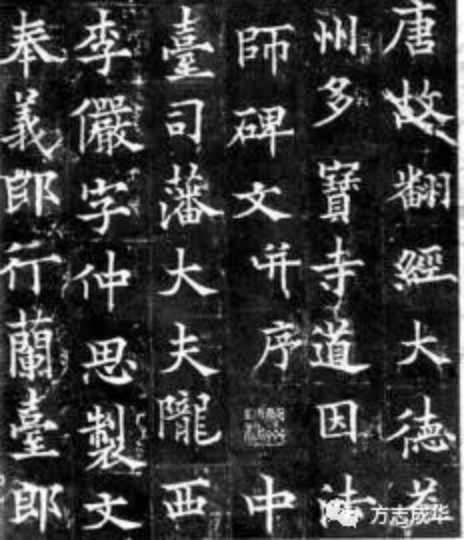 唐故翻經大德益
州多寶寺道因法
師碑文并序 中
臺司藩大夫隴西
李儼字仲思製文
奉義郎行蘭臺郎
方志成华